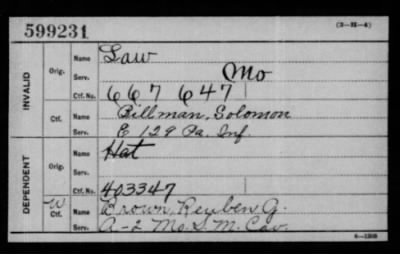 599231
(3—M—4)
INVALID
Orig.
Name Law
Serv. Mo
Ctf. No. 667 647
Ctf.
Name Billman, Solomon
Serv. E 129 Pa. Inf.
DEPENDENT
Orig.
Name Hat
Serv.
Ctf. No. 403347
W Ctf.
Name Brown, Reuben G.
Serv. A-2 Mo. S. M. Cav.